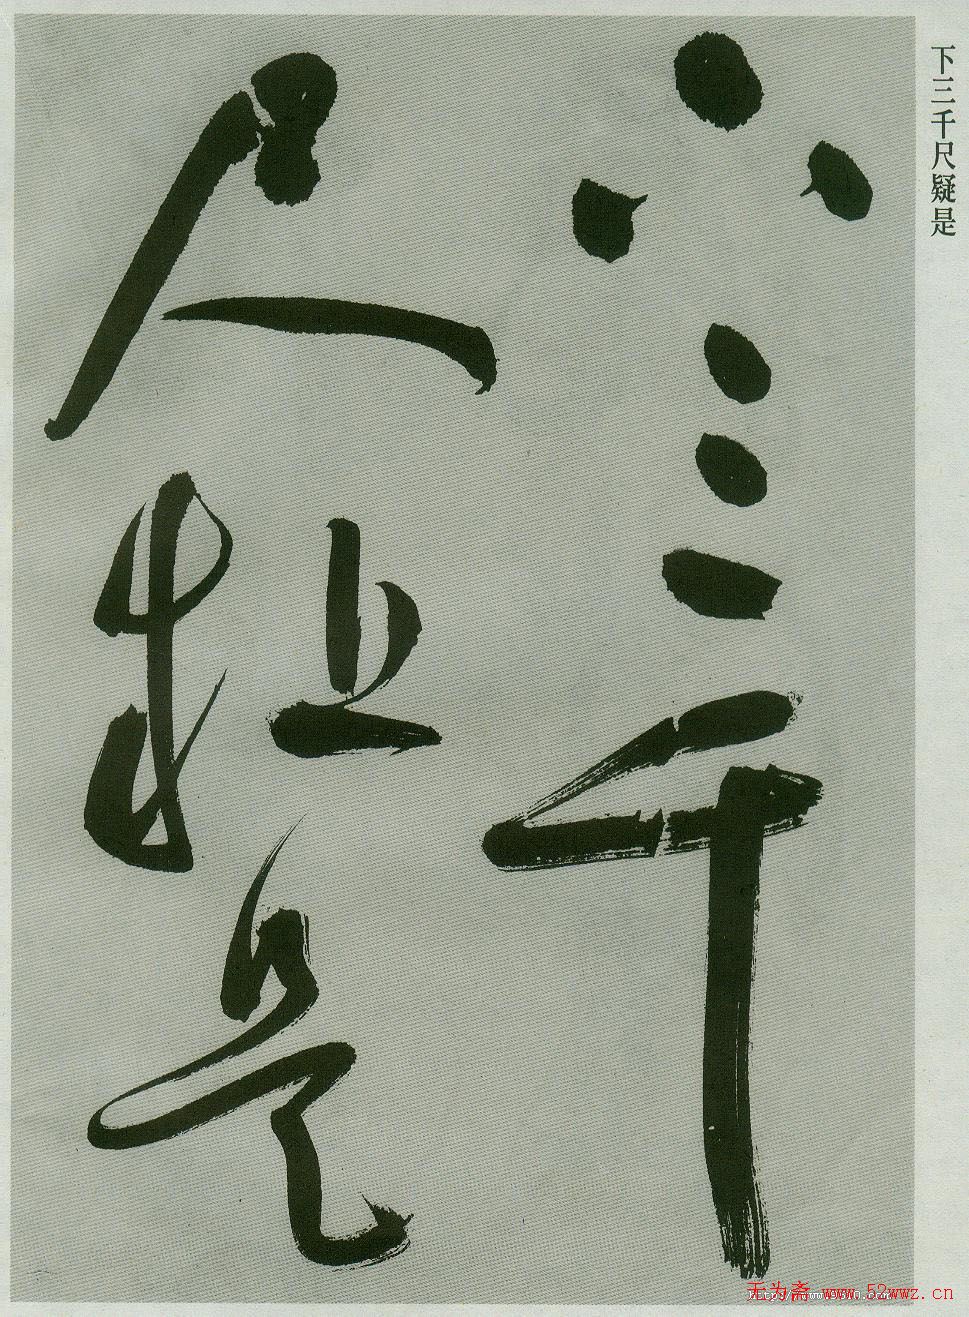 下三千尺疑是
下三千
尺疑是
无为斋 www.52wwz.cn